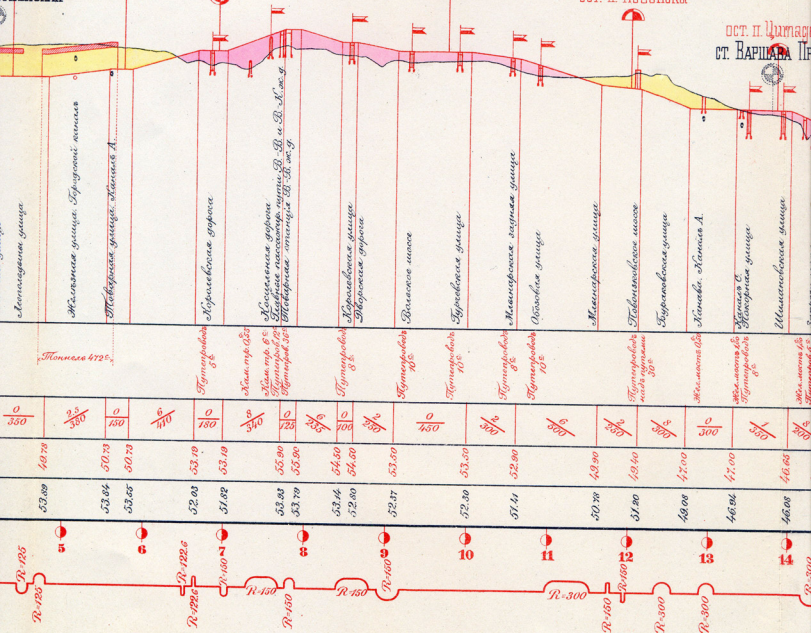 ост. п. Цита
ст. ВАРШАВА ПР
Леопольдины улица
Желѣзная улица. Городской каналъ
Товарная улица. Каналъ А.
Королевская дорога
Косцельная дорога
Главные пассажир. пути В.-В. и В. К. ж. д.
Товарная станція В.-В. ж. д.
Королевская улица
Дворская дорога
Вольское шоссе
Гурчевская улица
Млынарская задняя улица
Обозовая улица
Млынарская улица
Повонзковское шоссе
Бураковская улица
Канава. Каналъ А.
Каналъ С.
Покорная улица
Шимановская улица
Тоннель 472 с.
Путепроводъ 5 с.
Кам. тр. 0,55
Кам. тр. 6 с.
Путепров. 12 с.
Путепров. 36 с.
Путепроводъ 8 с.
Путепроводъ 10 с.
Путепроводъ 10 с.
Путепроводъ 8 с.
Путепроводъ 10 с.
Путепроводъ надъ путями 30 с.
Путепроводъ 8 с.
0/350 2,5/380 0/150 6/410 0/180 8/340 0/125 6/235 0/100 2/250 0/450 2/300 6/500 2/250 8/300 0/300 1/350
48.78 50.73 50.73 53.19 53.19 55.90 55.90 54.50 54.50 53.50 53.50 52.90 49.90 49.40 47.00 47.00 46.65
53.89 53.84 53.65 52.03 51.82 53.93 53.79 53.14 52.80 52.37 52.30 51.41 50.78 51.20 49.08 46.94 46.08
5 6 7 8 9 10 11 12 13 14
R=125 R=125 R=122.6 R=122.6 R=150 R=150 R=150 R=150 R=150 R=300 R=150 R=150 R=300 R=300 R=300